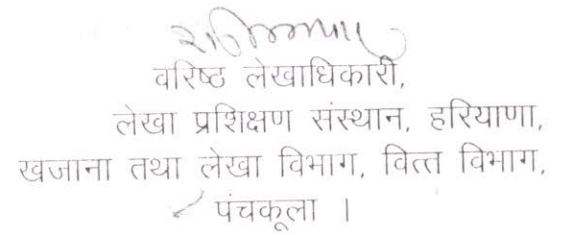 वरिष्ठ लेखाधिकारी,
लेखा प्रशिक्षण संस्थान, हरियाणा,
खजाना तथा लेखा विभाग, वित्त विभाग,
पंचकूला ।